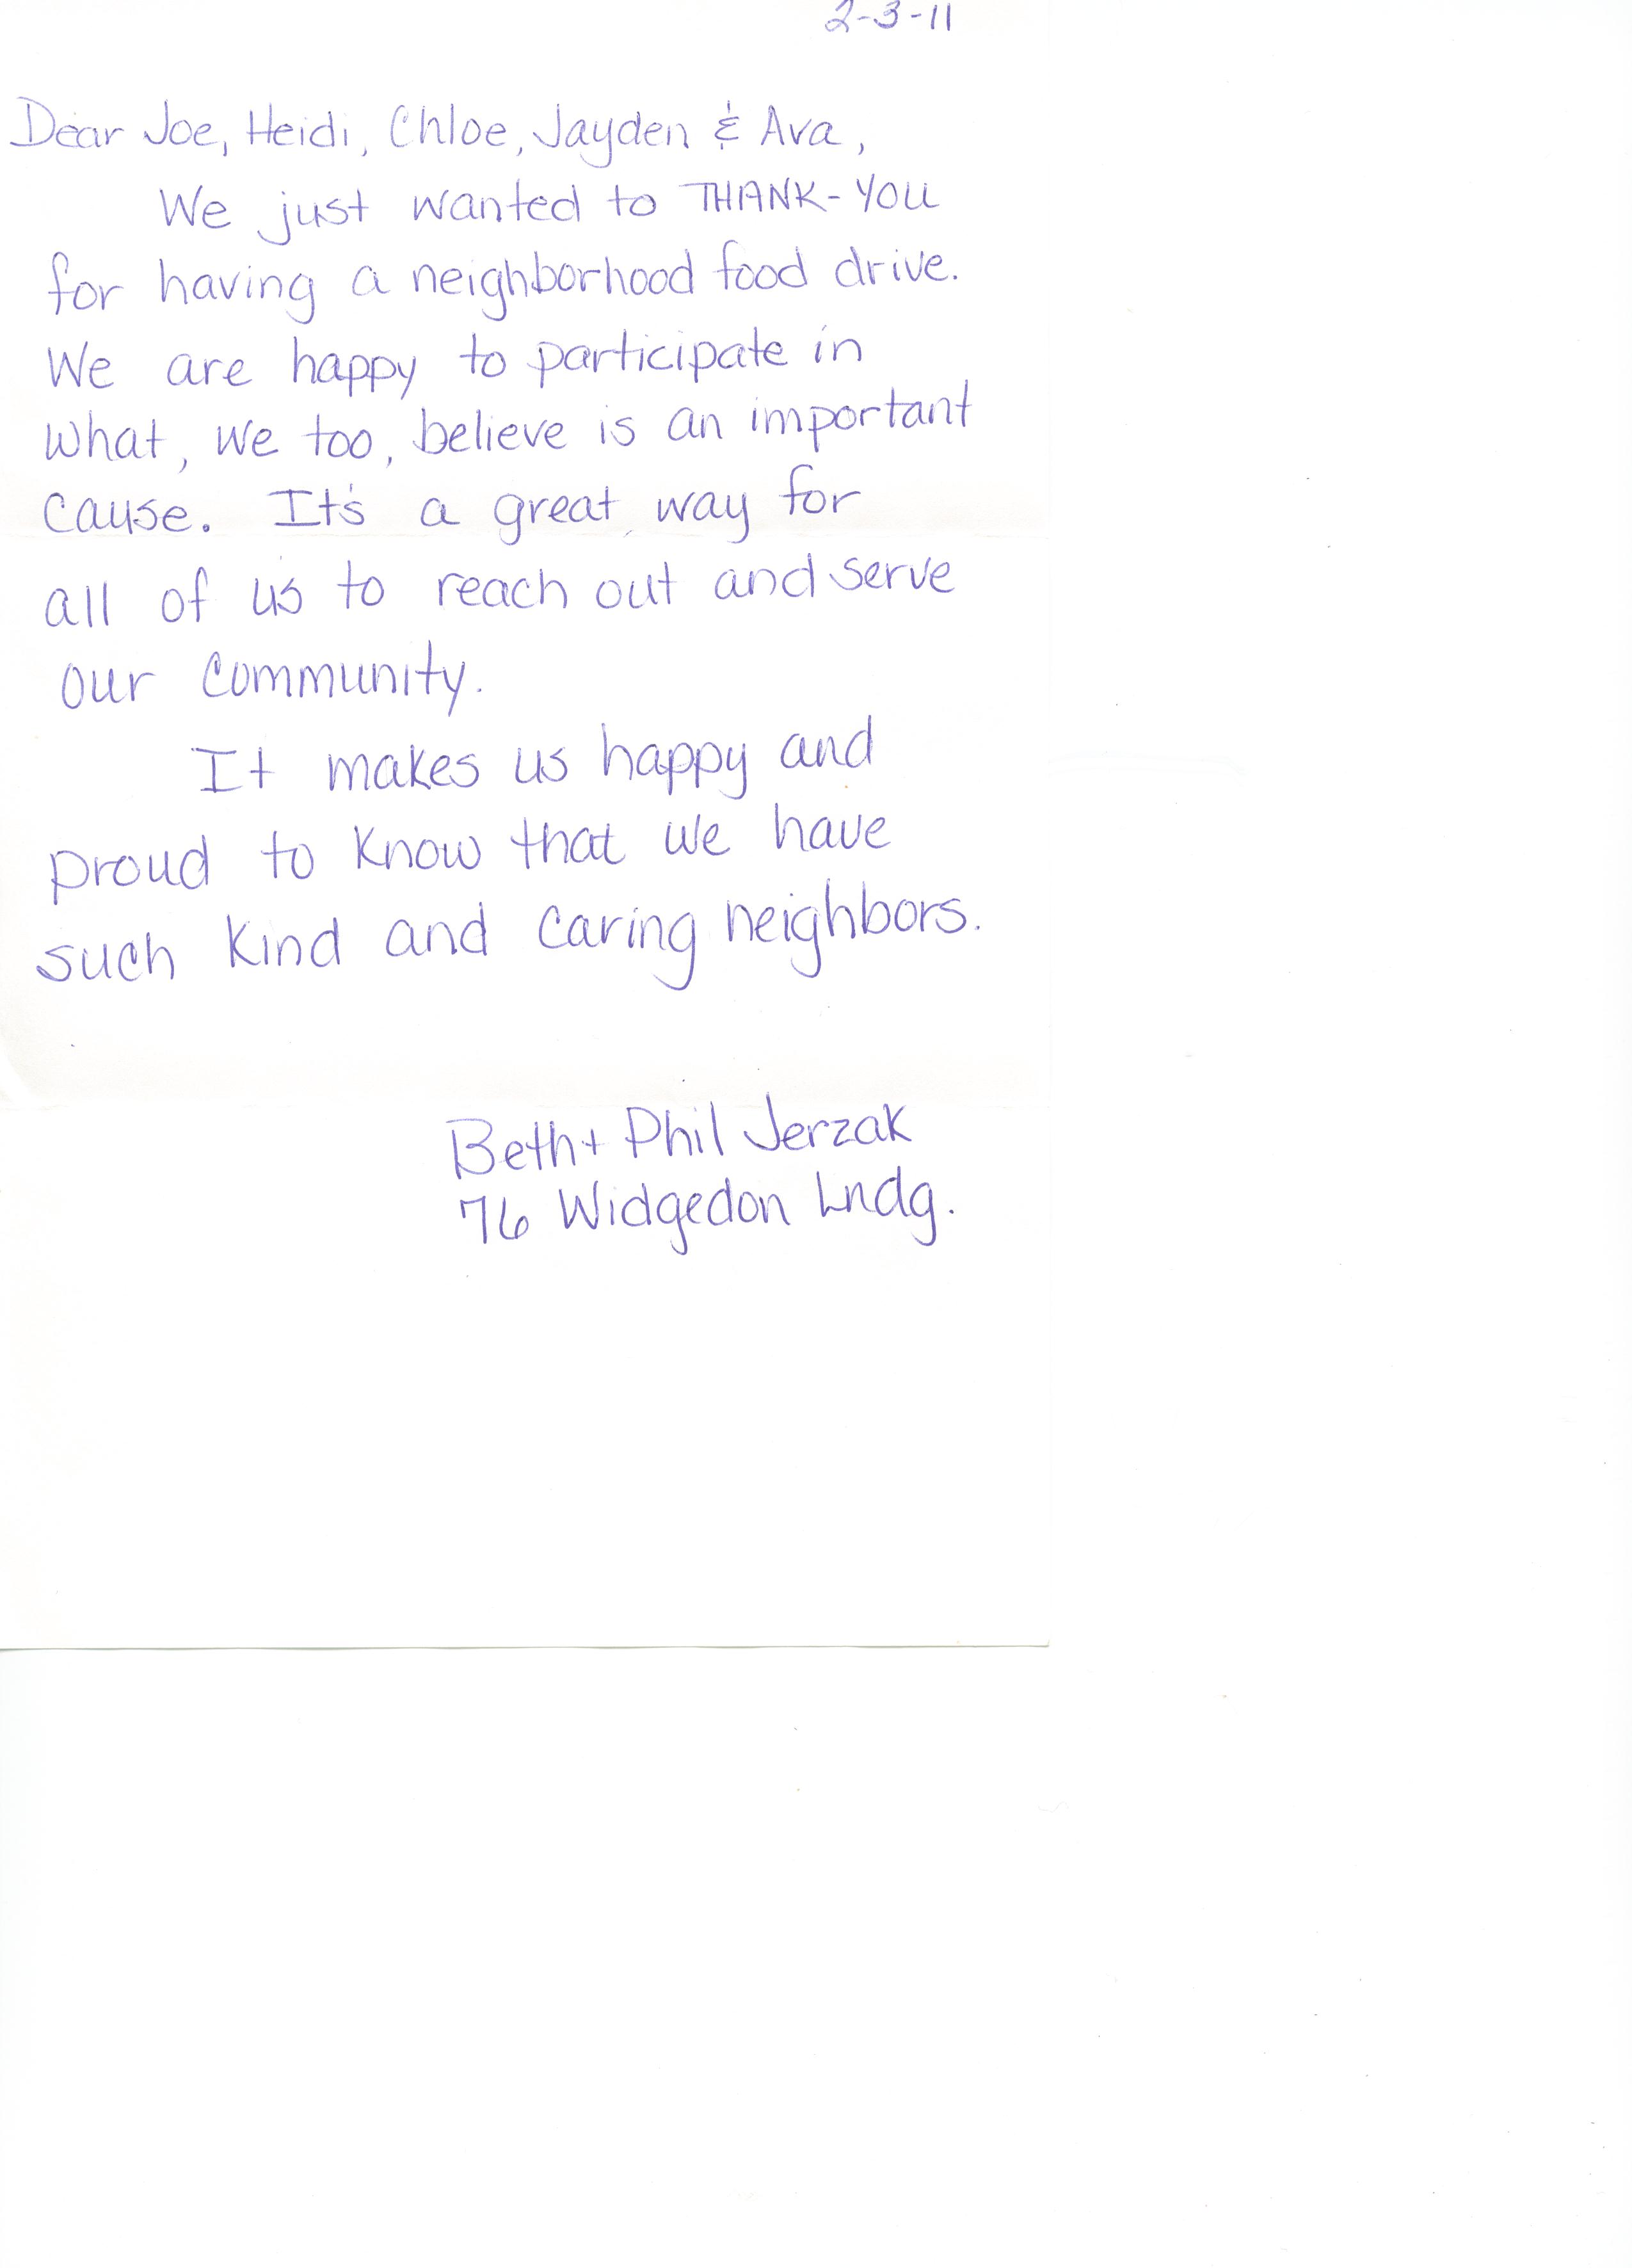 2-3-11
Dear Joe, Heidi, Chloe, Jayden & Ava,
We just wanted to THANK-YOU
for having a neighborhood food drive.
We are happy to participate in
what, we too, believe is an important
cause. It's a great way for
all of us to reach out and serve
our community.
It makes us happy and
proud to know that we have
such kind and caring neighbors.
Beth + Phil Jerzak
76 Widgedon Lndg.